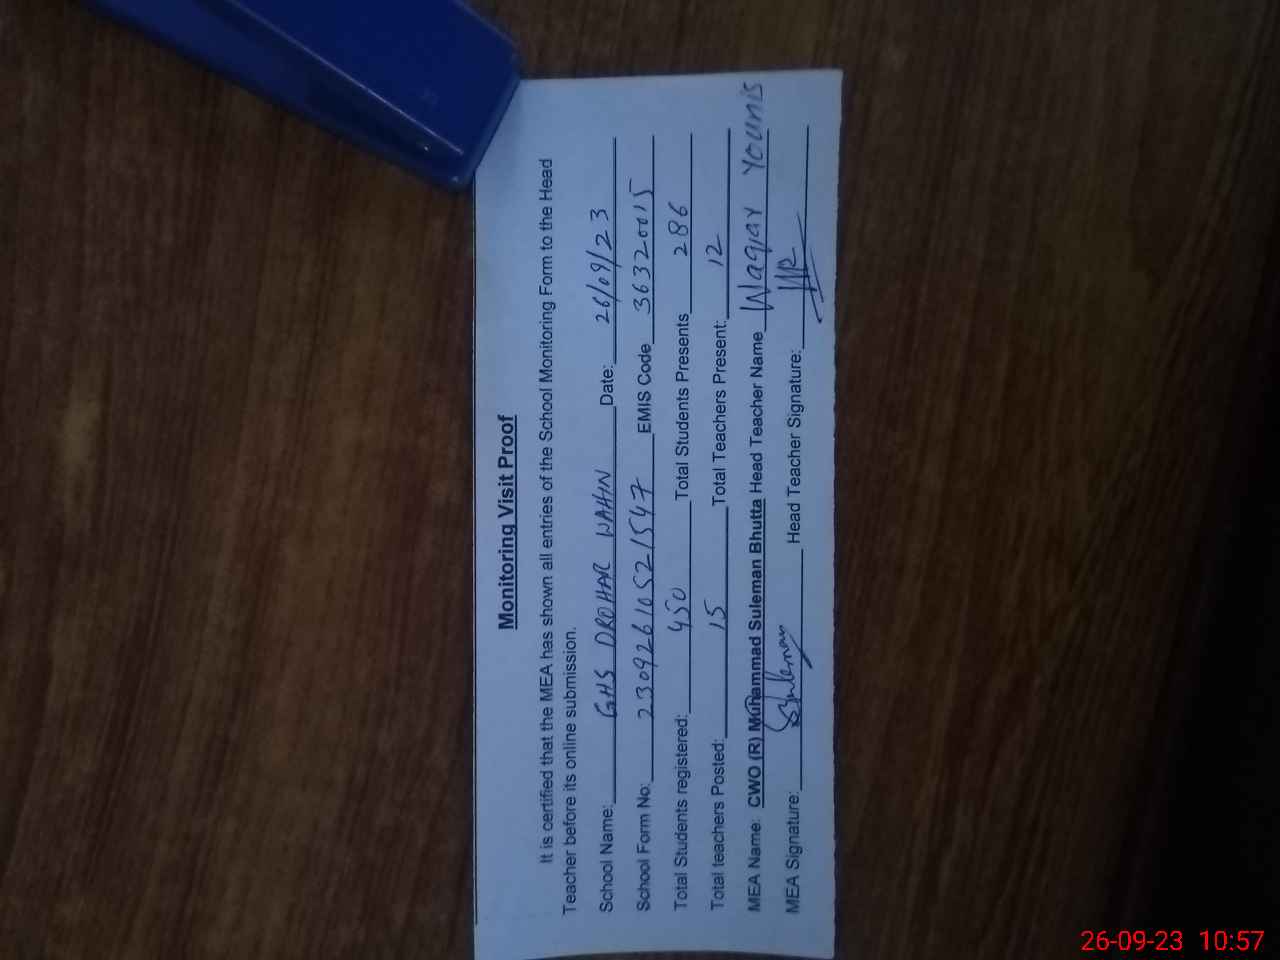 Monitoring Visit Proof
It is certified that the MEA has shown all entries of the School Monitoring Form to the Head
Teacher before its online submission.
School Name: GHS DROHAR WAHIN Date: 26/09/23
School Form No: 23092610521547 EMIS Code 36320015
Total Students registered: 450 Total Students Presents 286
Total teachers Posted: 15 Total Teachers Present: 12
MEA Name: CWO (R) Muhammad Suleman Bhutta Head Teacher Name Waqar Younis
MEA Signature: Suleman Head Teacher Signature:
26-09-23 10:57